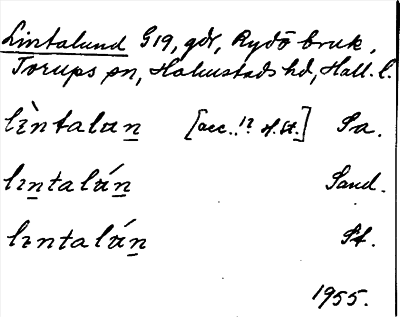 Lintalund G19, gdr, Rydö bruk,
Torups sn, Halmstads hd, Hall. l.
lìntalun [acc., !? of. St.] Sa.
lıntalún Sand.
lıntalún St.
1955.